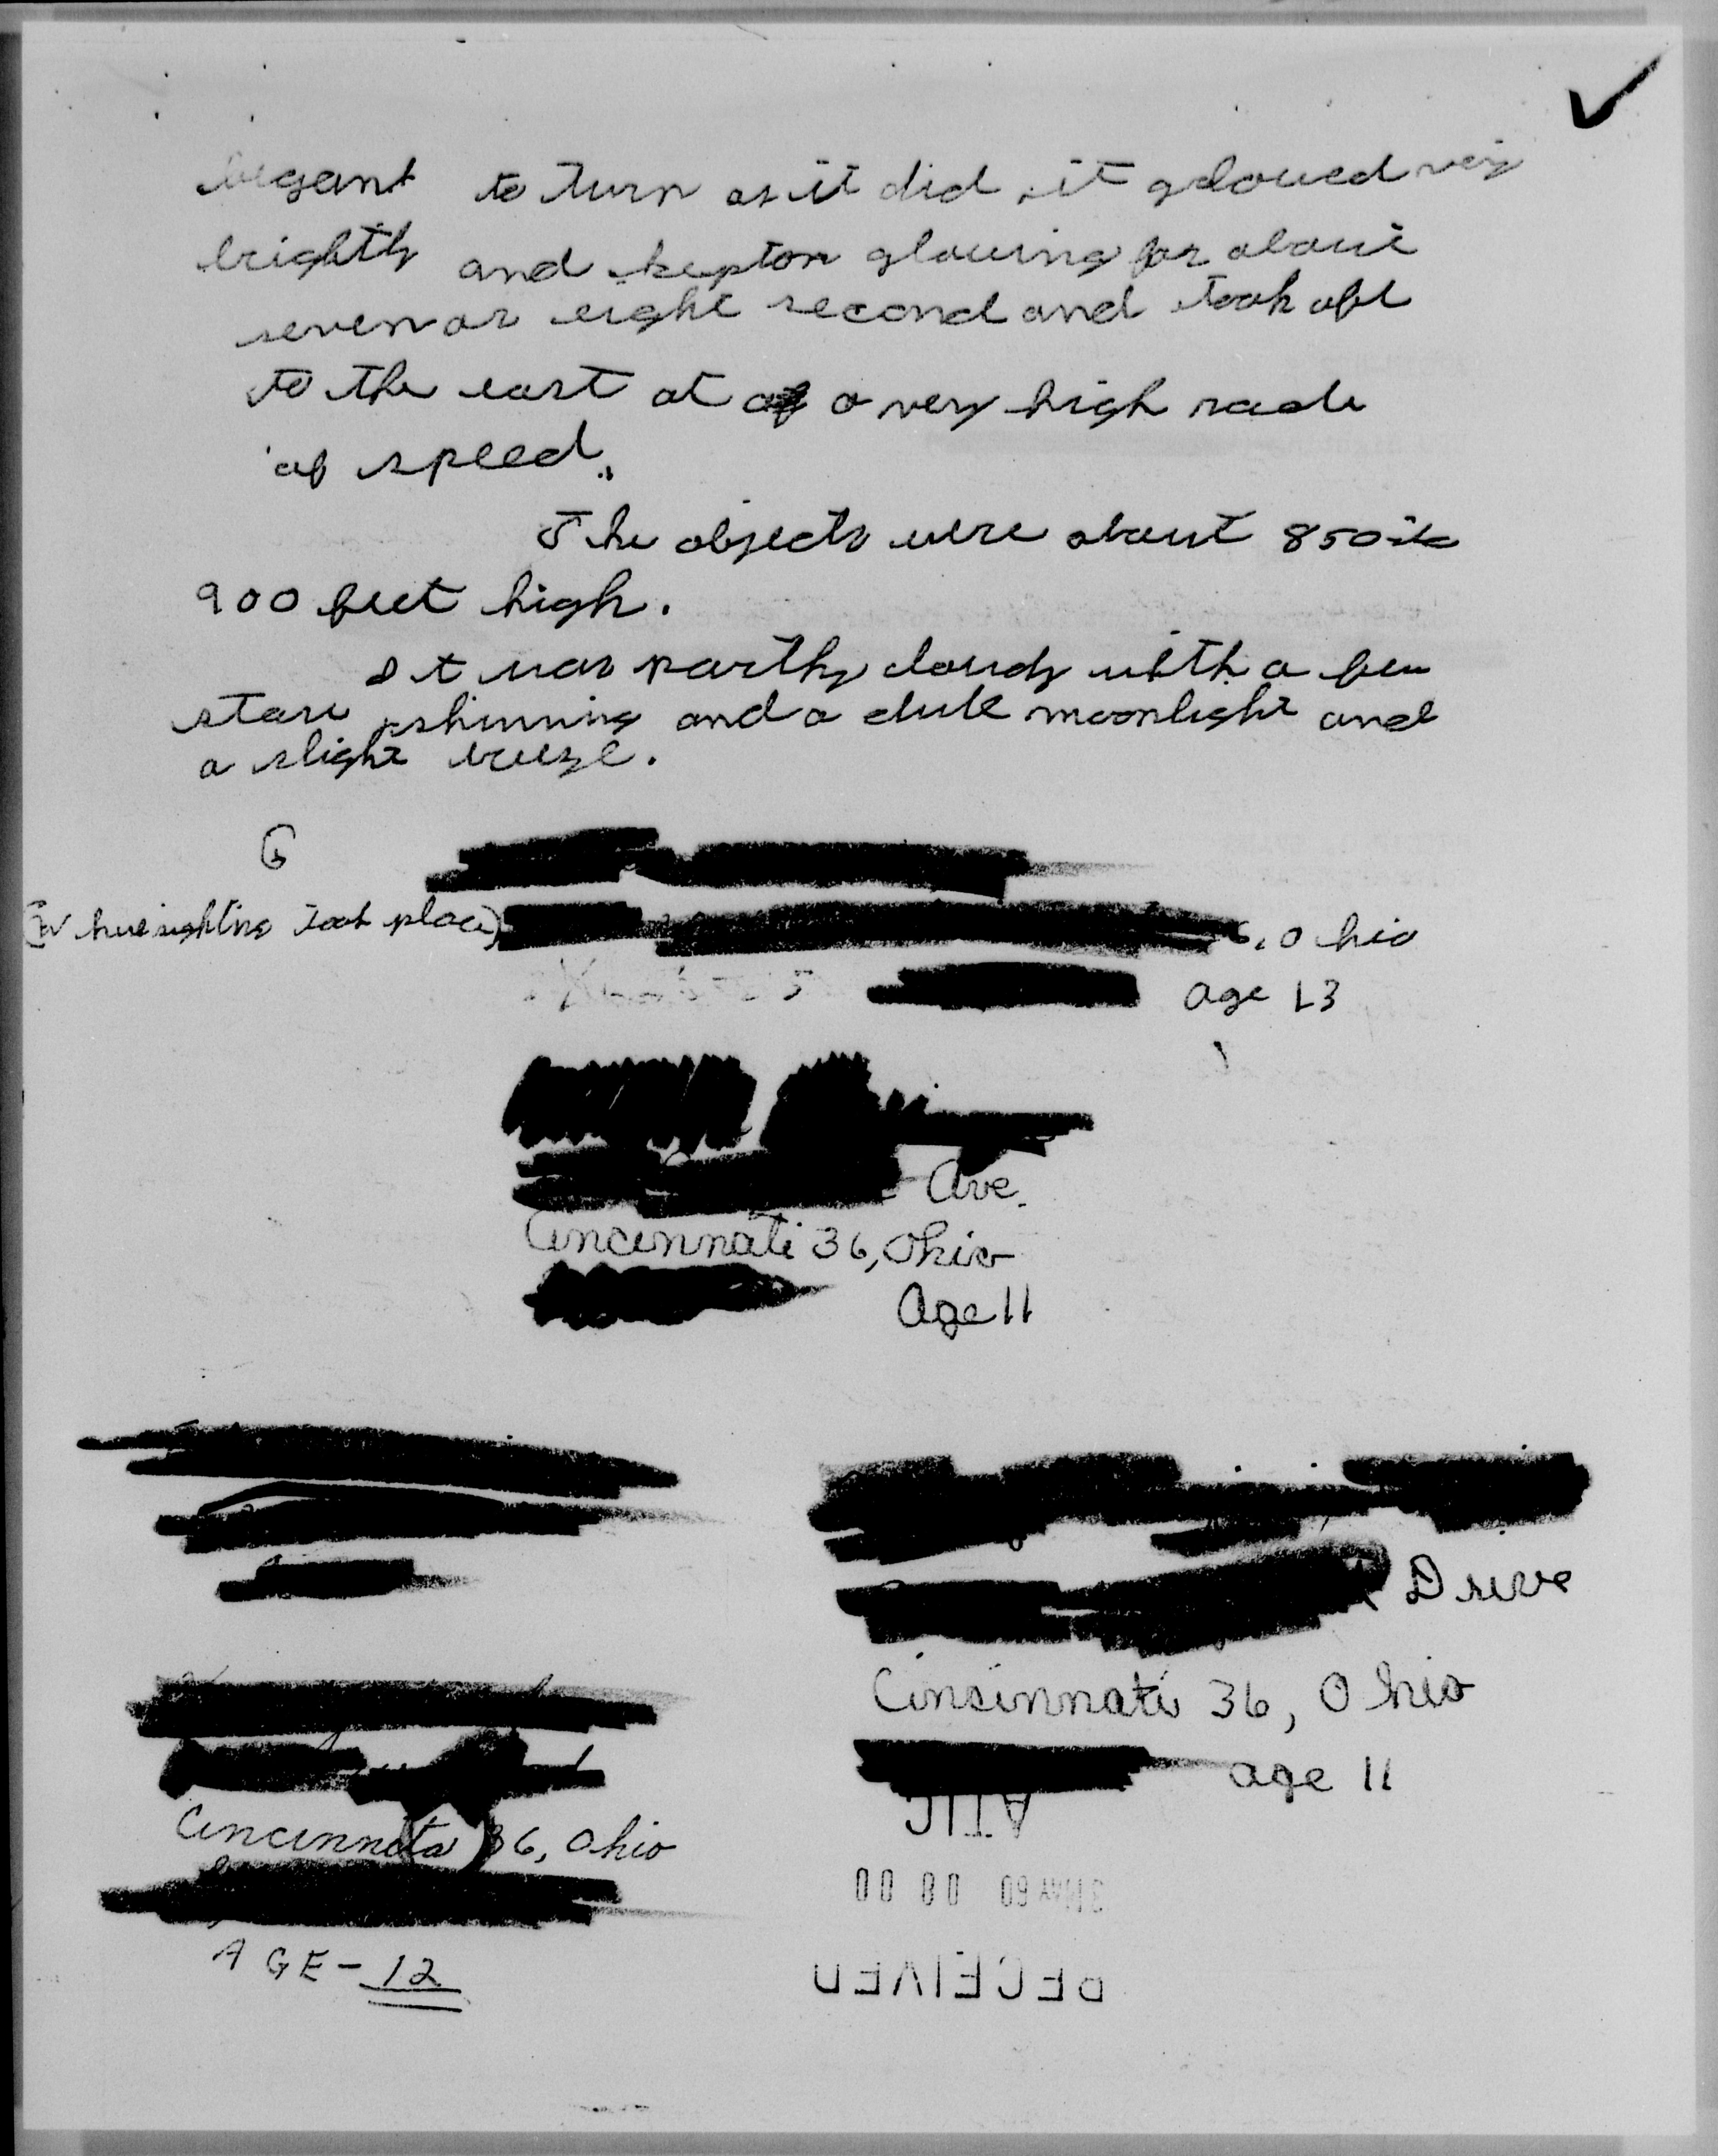 begant to turn as it did, it gloued very
brightly and kepton glowing for about
seven or eight second and took off
to the east at a very high rade
of speed.
The objects were about 850 to
900 feet high.
It was parthy cloudy with a few
stars shinning and a dull moonlight and
a slight breeze.
(Where sighting took place) 6, Ohio
age 13
Ave.
Cincinnati 36, Ohio
Age 11
Drive
Cincinnati 36, Ohio
age 11
Cincinnata 36, Ohio
AGE-12
ATIC
31 MAY 60 08 00
RECEIVED